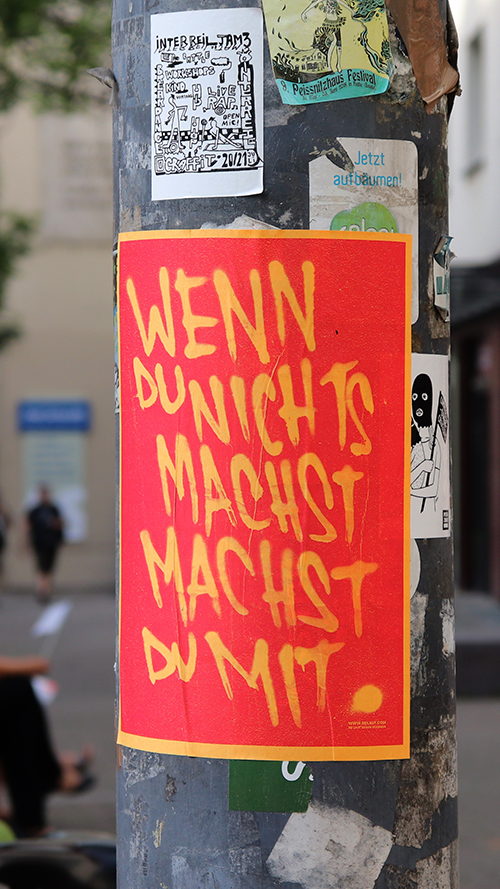 INTERREIL-JAM3
WORKSHOPS
KINO
LIVE
RAP
OPEN
MIC!
GRAFFITI
20/21
9. Peissnitzhaus Festival
Jetzt
aufbäumen!
WENN
DU NICHTS
MACHST
MACHST
DU MIT.